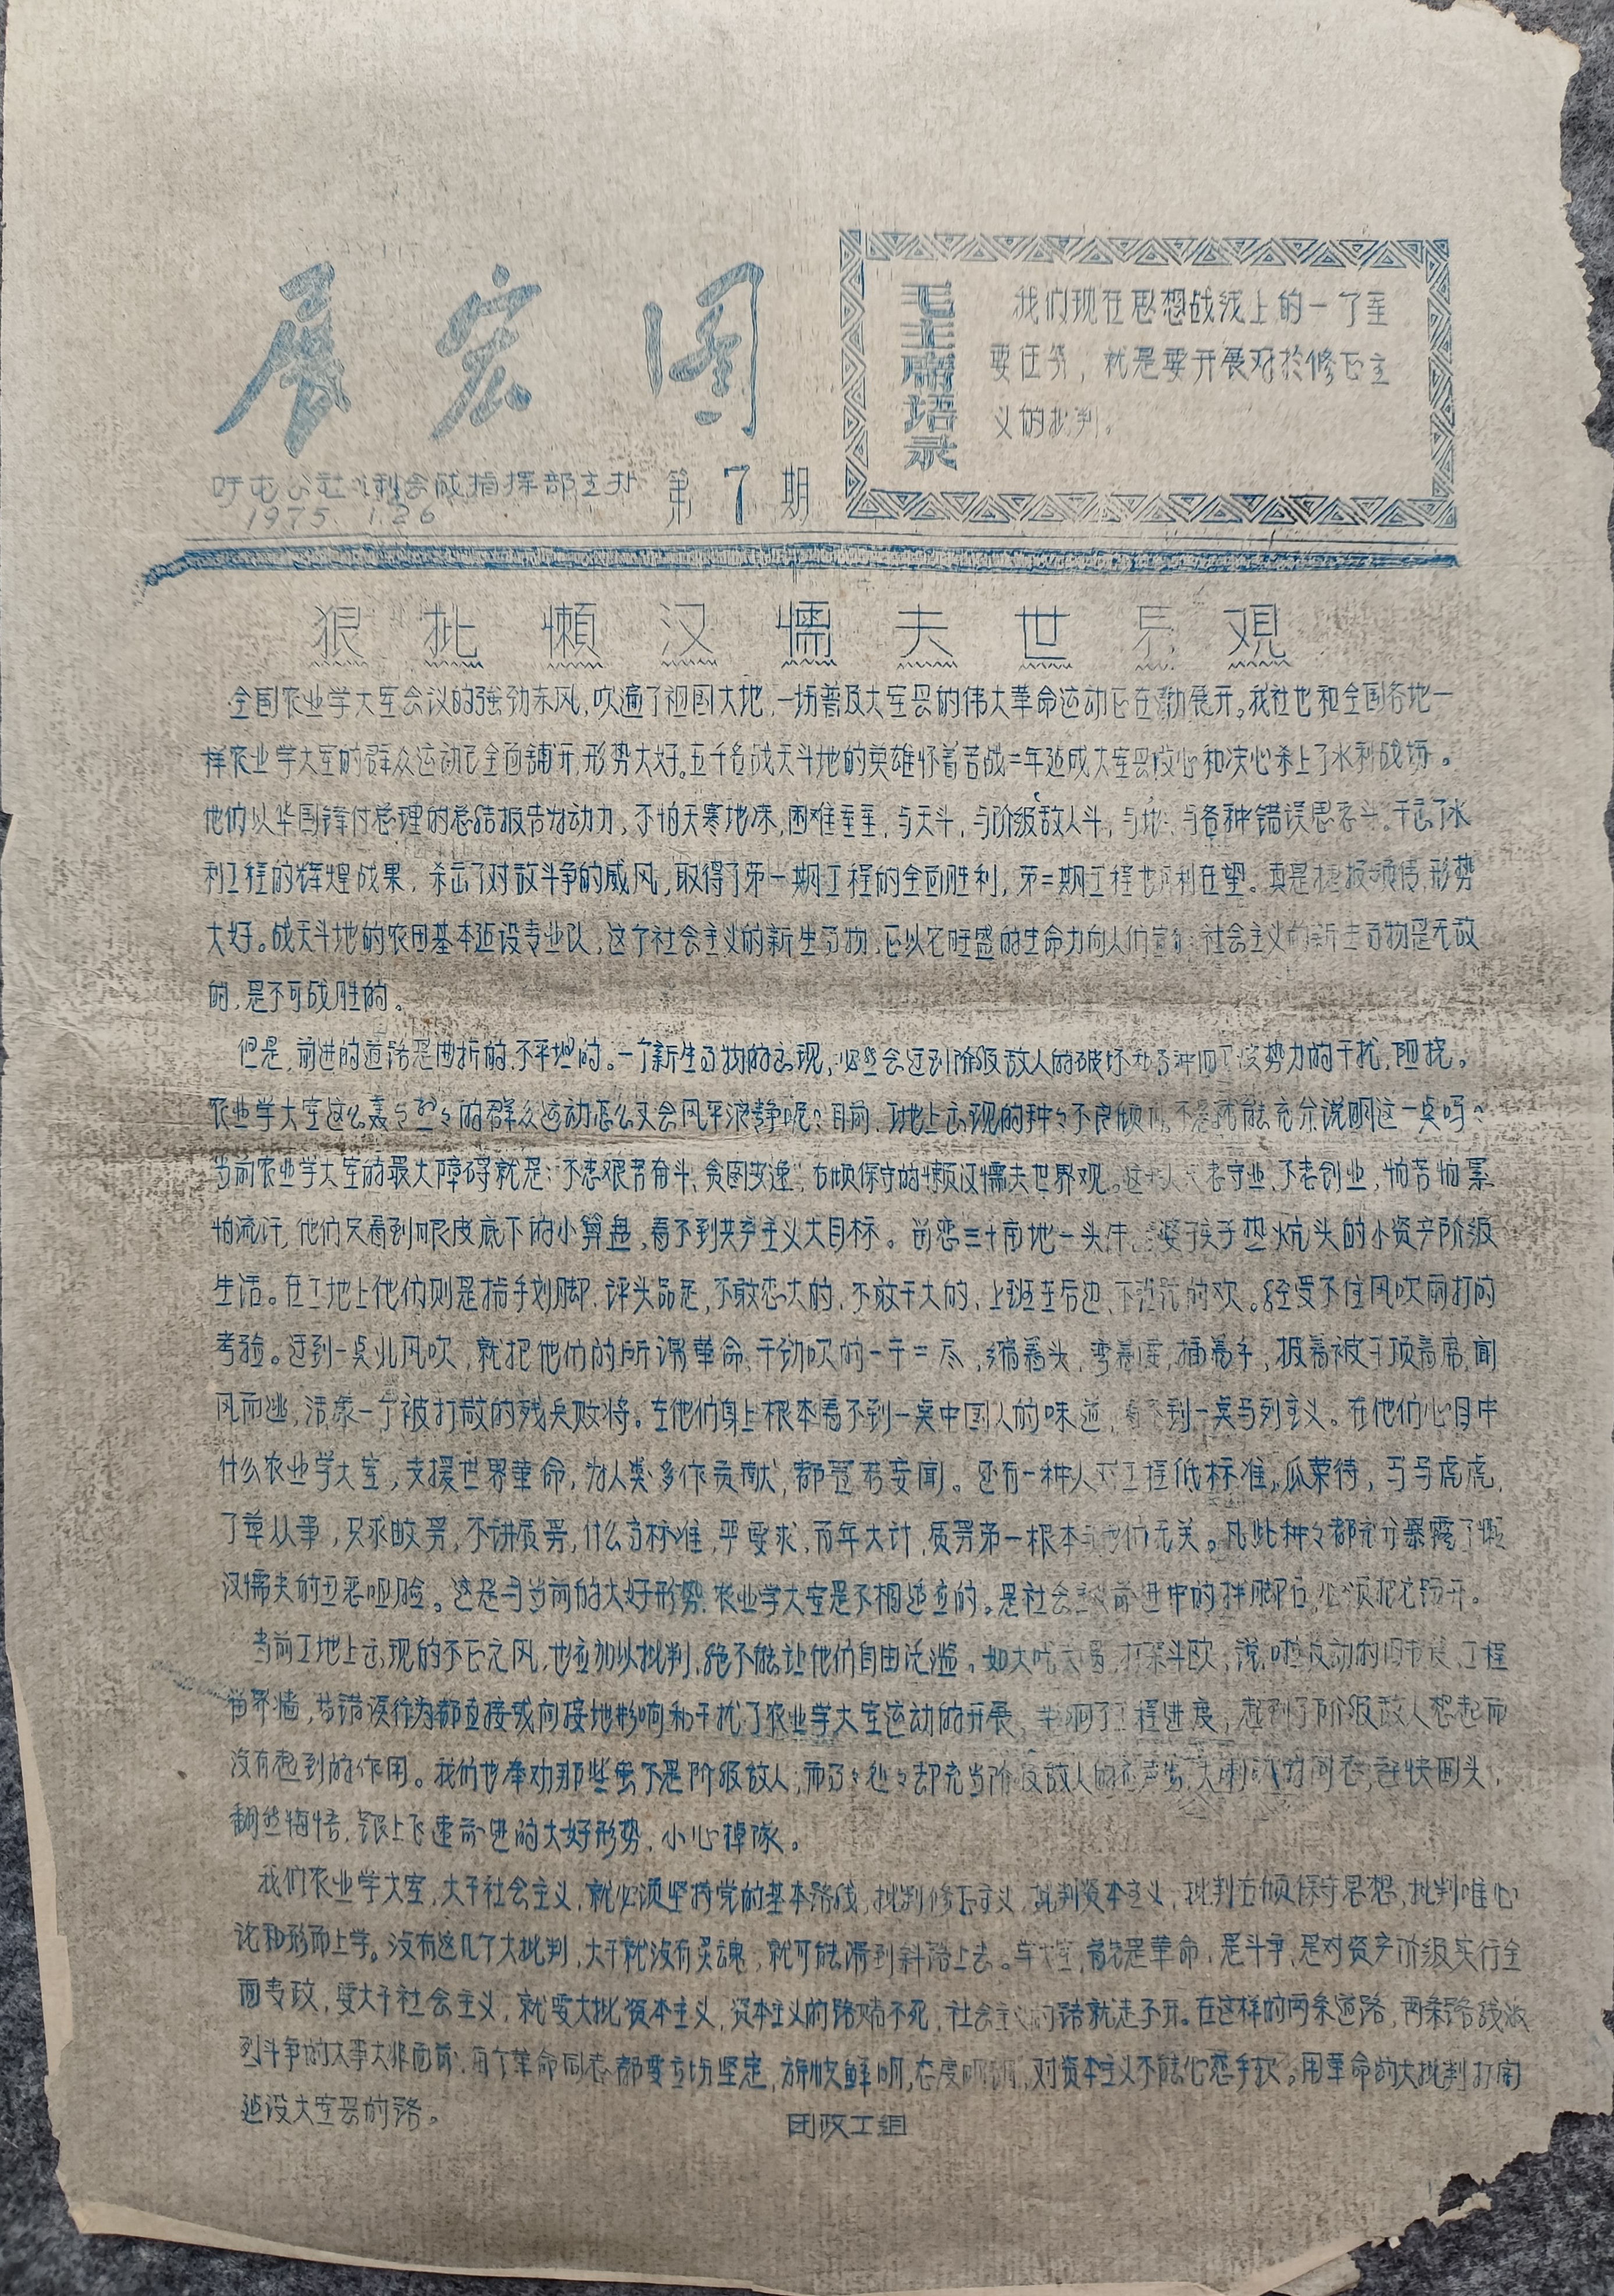 展宏图
公社水利会战指挥部主办 第7期
1975.1.26
毛主席语录
我们现在思想战线上的一个重
要任务,就是要开展对于修正主
义的批判。
狠批懒汉懦夫世界观
全国农业学大寨会议的强劲东风,吹遍了祖国大地,一场普及大寨县的伟大革命运动正在展开。我社也和全国各地一
样农业学大寨的群众运动已全面铺开,形势大好。五千名战天斗地的英雄怀着苦战二年建成大寨县和决心杀上了水利战场。
他们以华国锋付总理的总结报告为动力,不怕天寒地冻,困难重重,与天斗,与阶级敌人斗,与地,与各种错误思想斗。干出了水
利工程的辉煌成果,杀出了对敌斗争的威风,取得了第一期工程的全面胜利,第二期工程也胜利在望。真是捷报频传,形势
大好。战天斗地的农田基本建设专业队,这个社会主义的新生事物,已以它旺盛的生命力向人们宣布:社会主义的新生事物是无敌
的,是不可战胜的。
但是,前进的道路是曲折的,不平坦的。一个新生事物的出现,必然会遇到阶级敌人的破坏和各种势力的干扰,阻挠。
农业学大寨这么轰々烈々的群众运动怎么又会风平浪静呢?目前,工地上出现的种々不良倾向,不是就能充分说明这一点吗?
当前农业学大寨的最大障碍就是:不想艰苦奋斗、贪图安逸,右倾保守的懒汉懦夫世界观。这些人只想守业、不想创业,怕苦怕累
怕流汗,他们只看到眼皮底下的小算盘,看不到共产主义大目标。留恋三十亩地一头牛,老婆孩子热炕头的小资产阶级
生活。在工地上他们则是指手划脚,评头品足,不敢想大的,不敢干大的,上班走后边,下班跑的欢。经受不住风吹雨打的
考验。遇到一点北风吹,就把他们的所谓革命干劲吹的一干二尽,缩着头,弯着腰,插着手,披着被子顶着席,闻
风而逃,活象一个被打散的残兵败将。在他们身上根本看不到一点中国人的味道,看不到一点马列主义。在他们心目中
什么农业学大寨,支援世界革命,为人类多作贡献,都置若妄闻。还有一种人对工程低标准,瓜菜待,马马虎虎,
了草从事,只求数劳,不讲质劳,什么高标准,严要求,百年大计,质劳第一根本与他们无关。凡此种々都充分暴露了懒
汉懦夫的丑恶咀脸。这是与当前的大好形势,农业学大寨是不相适应的。是社会主义前进中的拌脚石,必须把它踢开。
当前工地上出现的不正之风,也应加以批判,绝不能让他们自由泛滥。如大吃大喝,打架斗欧,说唱反动的旧书,工程
留界墙,等错误行为都直接或间接地影响和干扰了农业学大寨运动的开展,影响了工程进度,起到了阶级敌人想起而
没有起到的作用。我们也奉劝那些虽不是阶级敌人,而却充当阶级敌人的大喇叭的同志,赶快回头,
翻然悔悟,跟上飞速前进的大好形势,小心掉队。
我们农业学大寨,大干社会主义,就必须坚持党的基本路线,批判修正主义,批判资本主义,批判右倾保守思想,批判唯心
论和形而上学。没有这几个大批判,大干就没有灵魂,就可能滑到斜路上去。学大寨,首先是革命,是斗争,是对资产阶级实行全
面专政,要大干社会主义,就要大批资本主义,资本主义的路堵不死,社会主义的路就走不开。在这样的两条道路,两条路线激
烈斗争的大事大非面前,每个革命同志都要立场坚定,旗帜鲜明,态度明朗,对资本主义不能心慈手软。用革命的大批判打开
建设大寨县的路。
团政工组